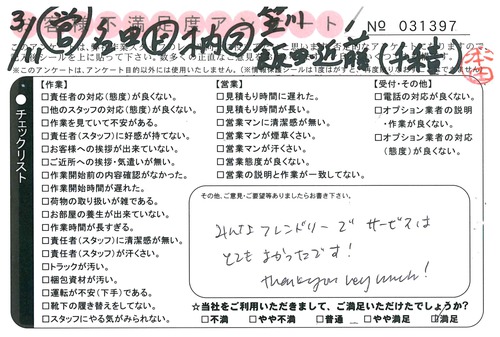 お客様不満足度アンケート
No 031397
3/1 営
笠川
飯田 近藤
本田
このアンケートは、
※このアンケートは、アンケート目的以外には使用いたしません。
チェックリスト
【作業】
□責任者の対応(態度)が良くない。
□他のスタッフの対応(態度)が良くない。
□作業を見ていて不安がある。
□責任者(スタッフ)に好感が持てない。
□お客様への挨拶が出来ていない。
□ご近所への挨拶・気遣いが無い。
□作業開始前の内容確認がなかった。
□作業開始時間が遅れた。
□荷物の取り扱いが雑である。
□お部屋の養生が出来ていない。
□作業時間が長すぎる。
□責任者(スタッフ)に清潔感が無い。
□責任者(スタッフ)が汗くさい。
□トラックが汚い。
□梱包資材が汚い。
□運転が不安(下手)である。
□靴下の履き替えをしてない。
□スタッフにやる気がみられない。
【営業】
□見積もり時間に遅れた。
□見積もり時間が長い。
□営業マンに清潔感が無い。
□営業マンが煙草くさい。
□営業マンが汗くさい。
□営業態度が良くない。
□営業の説明と作業が一致してない。
【受付・その他】
□電話の対応が良くない。
□オプション業者の説明
・作業が良くない。
□オプション業者の対応
(態度)が良くない。
その他、ご意見・ご要望等ありましたらお書き下さい。
みんなフレンドリーで サービスは
とてもよかったです!
thank you very much!
☆当社をご利用いただきまして、ご満足いただけたでしょうか?
□不満 □やや不満 □普通 □やや満足 □満足